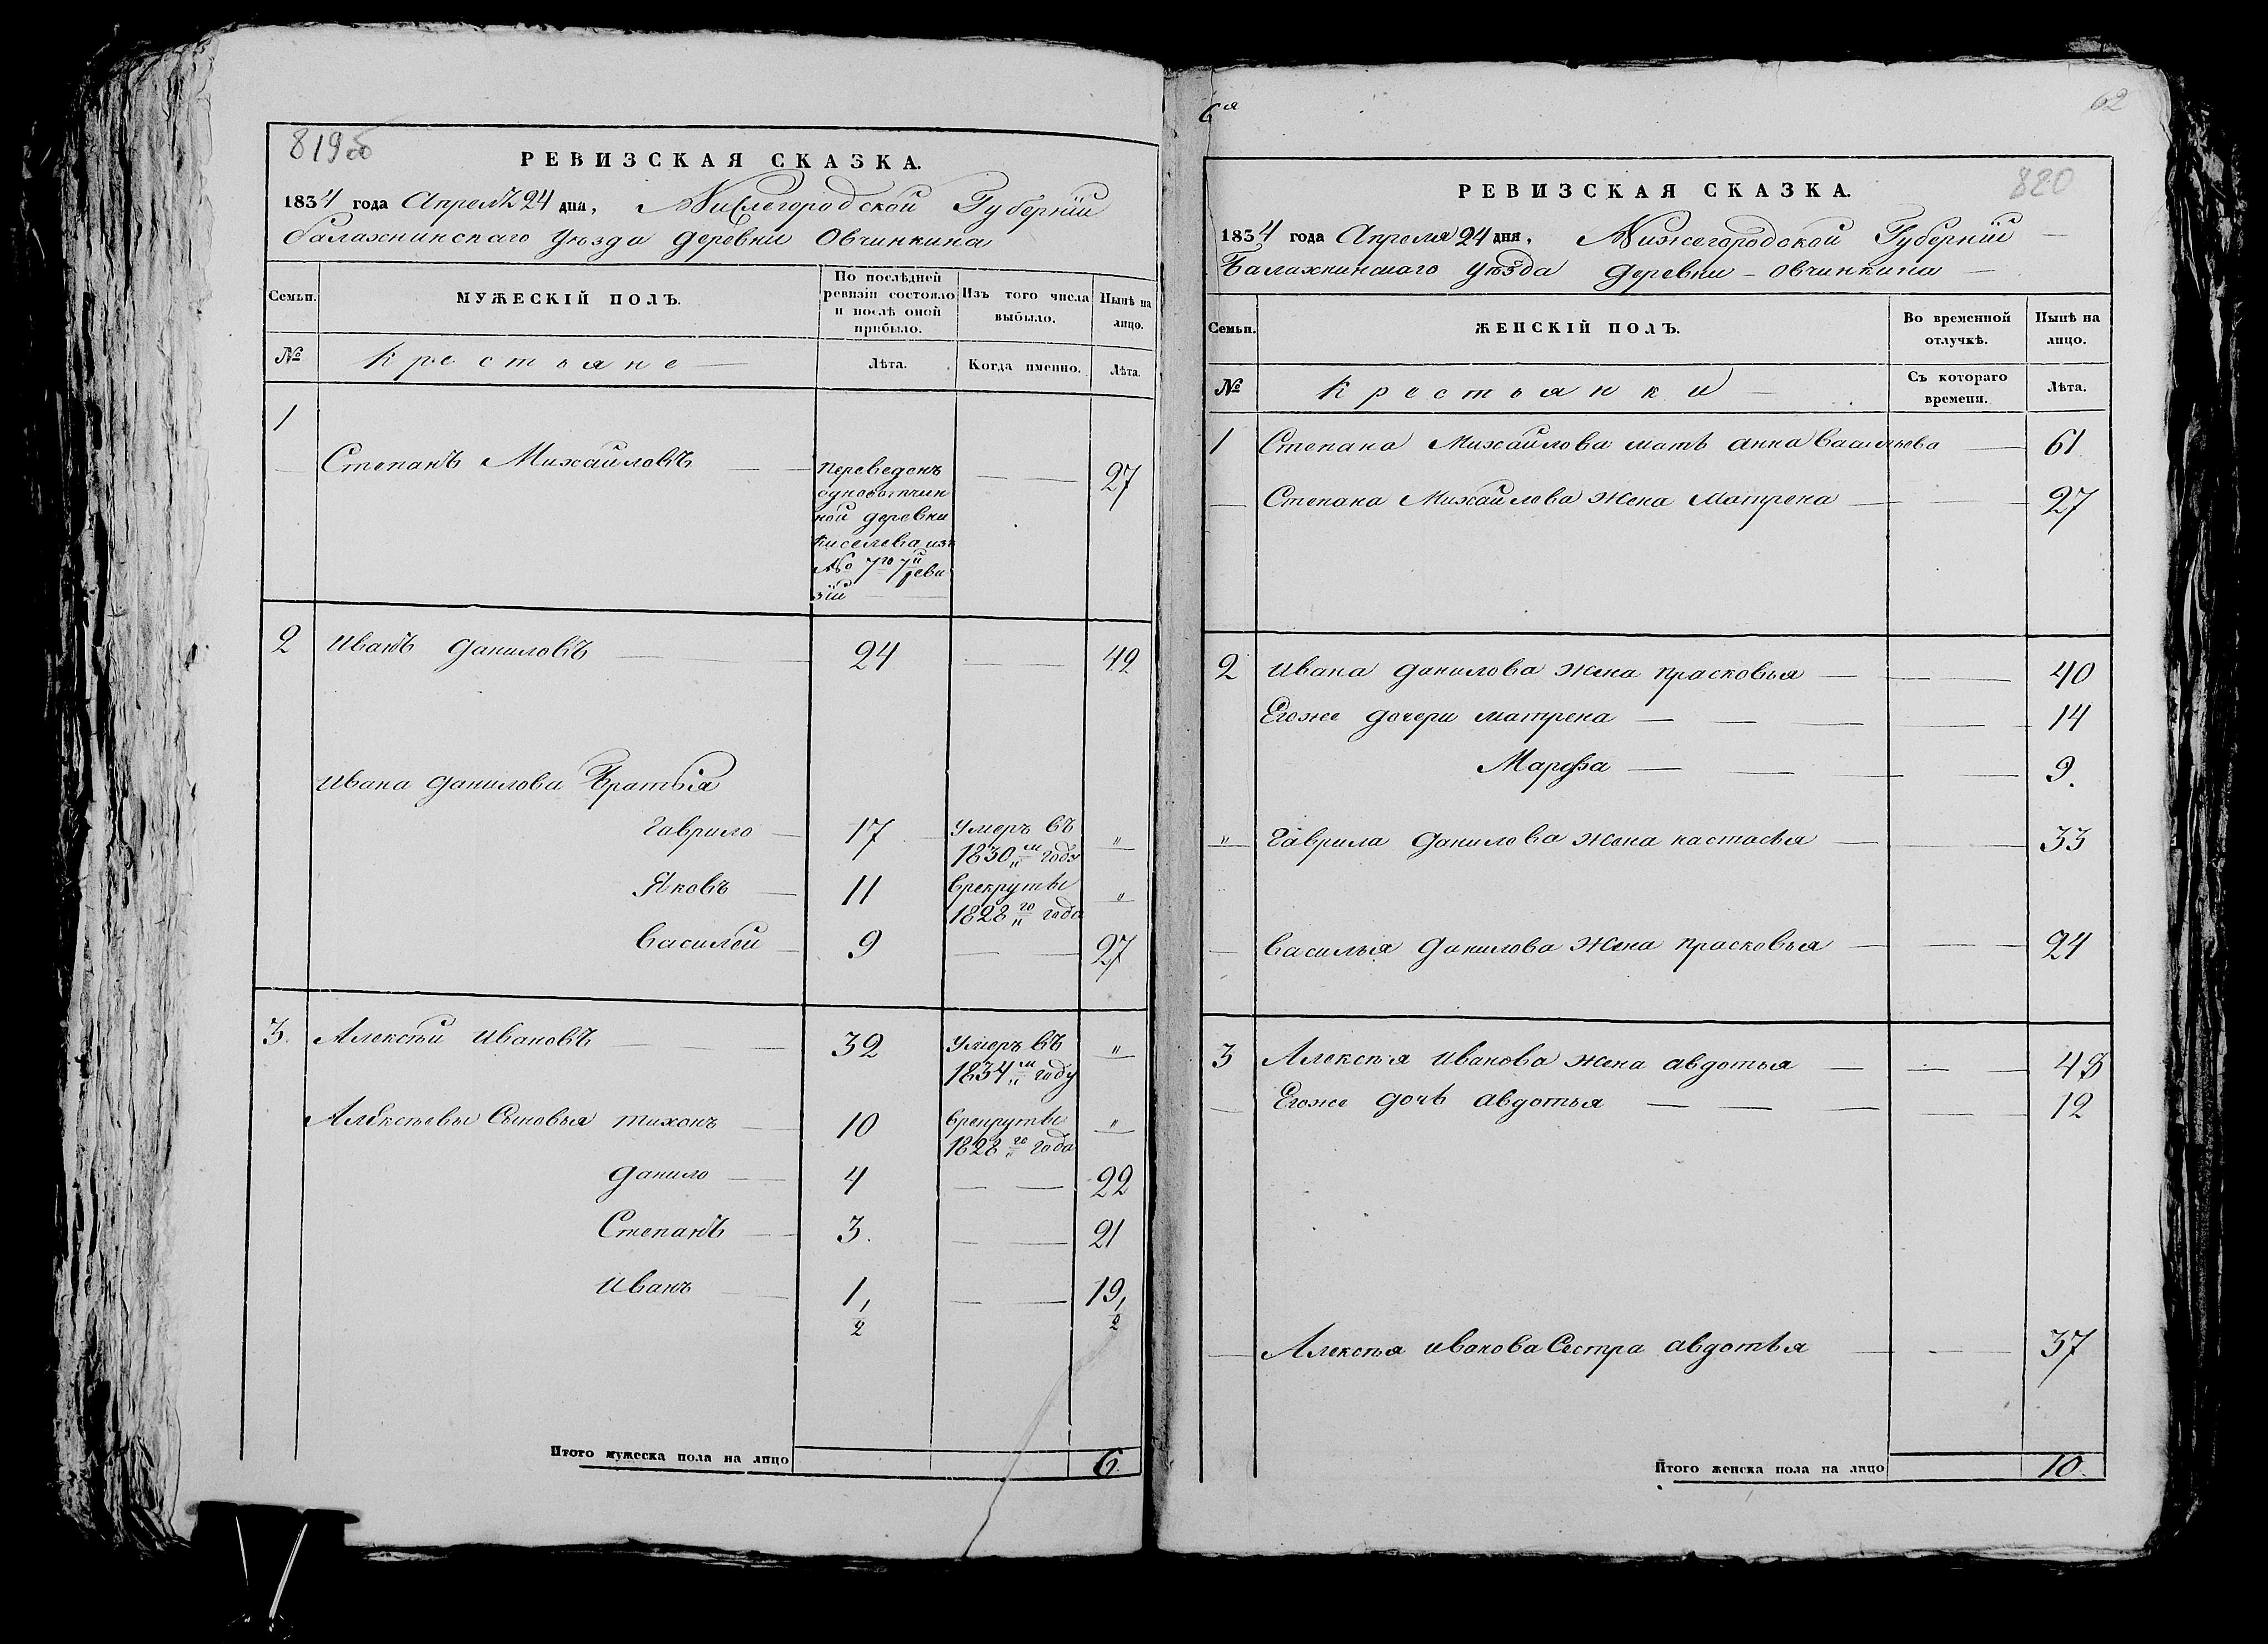 819об
РЕВИЗСКАЯ СКАЗКА.
1834 года Апрелѣ 24 дня, Нижегородской Губерніи
балахнинскаго уѣзда деревни Овчинкина
Семьи.
МУЖЕСКІЙ ПОЛЪ.
По послѣдней
ревизіи состояло
и послѣ оной
прибыло.
Изъ того числа
выбыло.
Нынѣ на
лицо.
№
Крестьяне
Лѣта.
Когда именно.
Лѣта.
1
Степанъ Михайловъ — — 27
переведенъ
одновотчин
ной деревни
Киселева изъ
№ 7го 7й реви
зіи
2 Иванъ даниловъ — 24 — — 42
Ивана данилова Братьія
Гаврило — 17 Умеръ въ "
1830м году
Яковъ — 11 врекруты "
1828го года
Василей — 9 — — 27
3. Алексѣй Ивановъ — — 32 Умеръ въ "
1834м году
Алексѣевы Сыновья тихонъ — 10 врекруты "
1828го года
данило — 4 — — 22
Степанъ — 3. — — 21
Иванъ — 1 1/2 — — 19 1/2
Итого мужеска пола на лицо 6.
6я
62
820
РЕВИЗСКАЯ СКАЗКА.
1834 года Апреля 24 дня, Нижегородской Губерніи —
Балахнинскаго уѣзда деревни - овчинкина —
Семьи.
ЖЕНСКІЙ ПОЛЪ.
Во временной
отлучкѣ.
Нынѣ на
лицо.
№
Крестьянки —
Съ котораго
времени.
Лѣта.
1 Степана Михайлова мать анна васильева — 61
— Степана Михайлова жена матрена — — 27
2 ивана данилова жена прасковья — — — 40
Егоже дочери матрена — — — — 14
Марфа — — — — 9.
" гаврила данилова жена настасья — — — 33
— василья данилова жена прасковья — — — 24
3 Алексѣя иванова жена авдотья — — — 49
— Егоже дочь авдотья — — — — — 12
— Алексѣя иванова Сестра авдотья — — — 37
Итого женска пола на лицо 10.